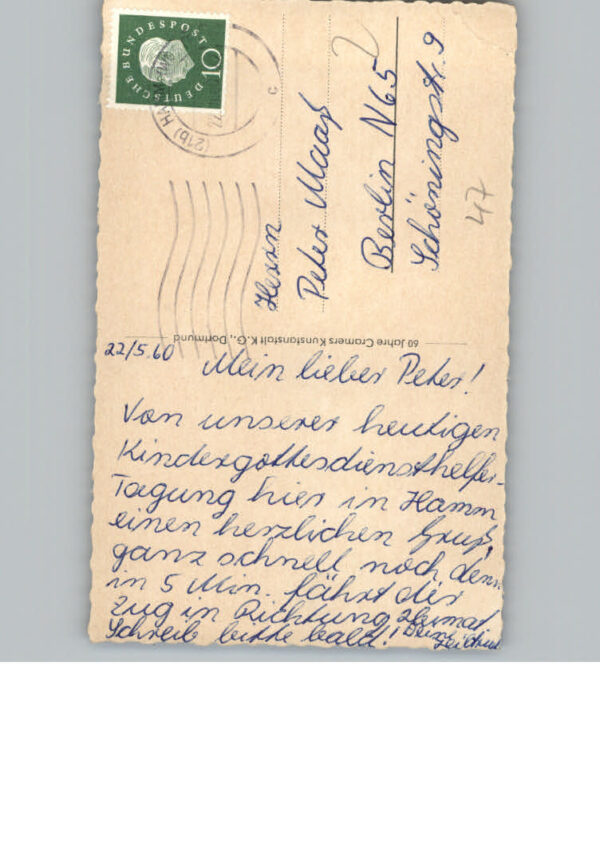 DEUTSCHE BUNDESPOST
10
(21b)
c
2
Herrn
Peter Maaß
Berlin N65
Schöningstr. 9
47
60 Jahre Cramers Kunstanstalt K.G., Dortmund
22/5.60
Mein lieber Peter!
Von unserer heutigen
Kindergottesdiensthelfer-
Tagung hier in Hamm
einen herzlichen Gruß,
ganz schnell noch, denn
in 5 Min. fährt der
Zug in Richtung Heimat.
Schreib bitte bald! Deine